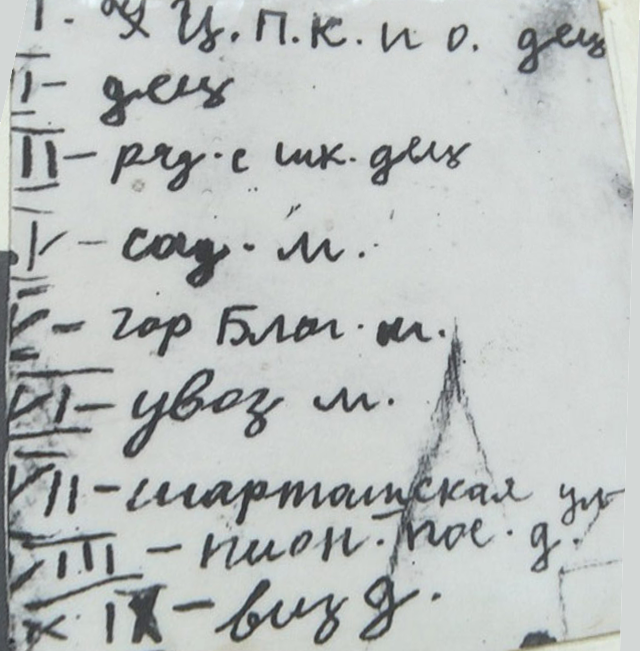 I. У Ц.П.К. и О. дец
I - дец
III - ряд. с шк. дец
IV - сад. м.
V - гор Благ. м.
VI - увоз м.
VII - шарташская ул
VIII - пион. пос. д.
IX - виз д.